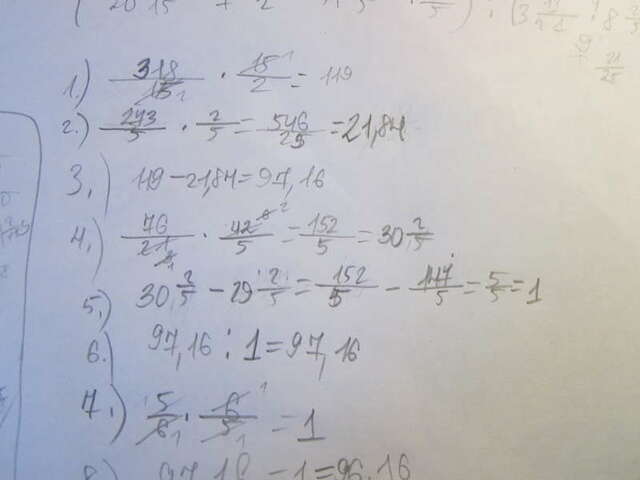 1.) 318/15 · 15/2 = 119
2.) 243/5 · 2/5 = 546/25 = 21,84
3.) 119 - 21,84 = 97,16
4.) 76/21 · 42/5 = 152/5 = 30 2/5
5.) 30 2/5 - 29 2/5 = 152/5 - 147/5 = 5/5 = 1
6.) 97,16 : 1 = 97,16
7.) 5/6 · 6/5 = 1
8) 97,16 - 1 = 96,16